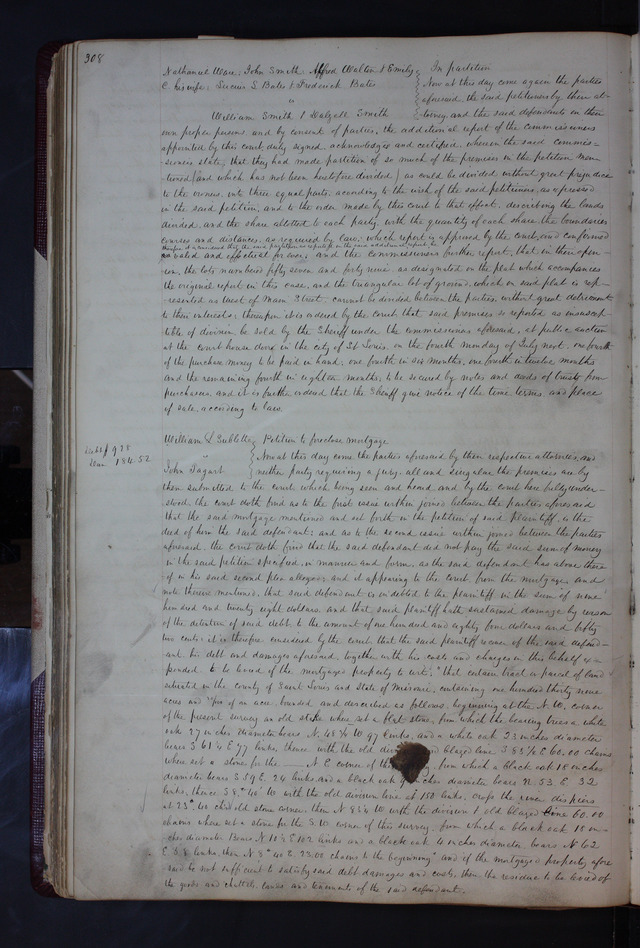 308
Nathaniel Ware, John Smith Alfred Walton & Emily
C. his wife, Lucius S Bates & Frederick Bates
vs
William Smith & Dalzell Smith
In partition
Now at this day come again the parties
aforesaid the said petitioners by their at-
torney, and the said defendants in their
own proper persons and by consent of parties, the additional report of the commissioners
appointed by this court duly signed, acknowledged and certified, wherein the said commis-
sioners state, that they had made partition of so much of the premises in the petition men-
tioned (and which has not been heretofore divided) as could be divided without great prejudice
to the owners, into three equal parts, according to the wish of the said petitioners, as expressed
in the said petition, and to the order made by this court to that effect, describing the lands
divided, and the share allotted to each party with the quantity of each share the boundaries
courses and distances, as required by law; which report is approved by the court, and confirmed
as valid and effectual forever, and the commissioners further report, that in their opin-
ion, the lots numbered fifty seven and forty nine, as designated on the plat which accompanies
the original report in this case, and the triangular lot of ground, which on said plat is rep-
resented as East of Main Street, cannot be divided between the parties without great detriment
to their interests; thereupon it is ordered by the court that said premises so reported as unsuscep-
tible of division, be sold by the Sheriff under the commissioners aforesaid, at public auction
at the court house door in the city of St Louis, on the fourth monday of July next, one fourth
of the purchase money to be paid in hand, one fourth in six months, one fourth in twelve months
and the remaining fourth in eighteen months, to be secured by notes and deeds of trust from
purchasers, and it is further ordered that the Sheriff give notice of the time terms and place
of sale, according to law.
Debt $928
Dam 184.52
William L Sublette
vs
John Sagart
Petition to foreclose mortgage
Now at this day come the parties aforesaid by their respective attornies, and
neither party requiring a jury, all and singular the premises are by
them submitted to the court which being seen and heard and by the court here fully under-
stood, the court doth find as to the first issue within joined between the parties aforesaid
that the said mortgage mentioned and set forth in the petition of said plaintiff, is the
deed of him the said defendant; and as to the second issue within joined between the parties
aforesaid, the court doth find that the said defendant did not pay the said sum of money
in the said petition specified, in manner and form, as the said defendant has above there-
of in his said second plea alleged; and it appearing to the court from the mortgage, and
note therein mentioned, that said defendant is indebted to the plaintiff in the sum of nine
hundred and twenty eight dollars, and that said plaintiff hath sustained damage by reason
of the detention of said debt to the amount of one hundred and eighty four dollars and fifty
two cents; it is therefore considered by the court that the said plaintiff recover of the said defend-
ant his debt and damages aforesaid, together with his costs and charges in this behalf ex-
pended, to be levied of the mortgaged property to wit; "that certain tract or parcel of land
situated in the county of Saint Louis and State of Missouri, containing one hundred thirty nine
acres and of an acre, bounded and described as follows, beginning at the N. W. corner
of the present survey an old stake when set a flat stone, from which the bearing trees a white
oak 27 inches diameter bears N. 48½ W 97 links, and a white oak 23 inches diameter
bears S 61¼ E 77 links, thence with the old and blazed line S 83½ E 60.00 chains
when set a stone for the N E corner of the from which a black oak 18 inches
diameter bears S 59 E. 24 links and a black oak inches diameter bears N. 53 E 32
links, thence S 8° 40' W with the old division line at 150 links, cross the river des peres
at 23°. to the old stone corner, then N 83½ W with the division & old blazed line 60.00
chains where set a stone for the S. W corner of this survey, from which a black oak 18 in-
ches diameter Bears N 10½ E 102 links and a black oak 14 inches diameter bears N 62
E 58 links, then N 8° 40 E. 23.00 chains to the beginning" and if the mortgaged property afore-
said be not sufficient to satisfy said debt damages and costs, then the residue to be levied of
the goods and chattels, lands and tenements of the said defendant.